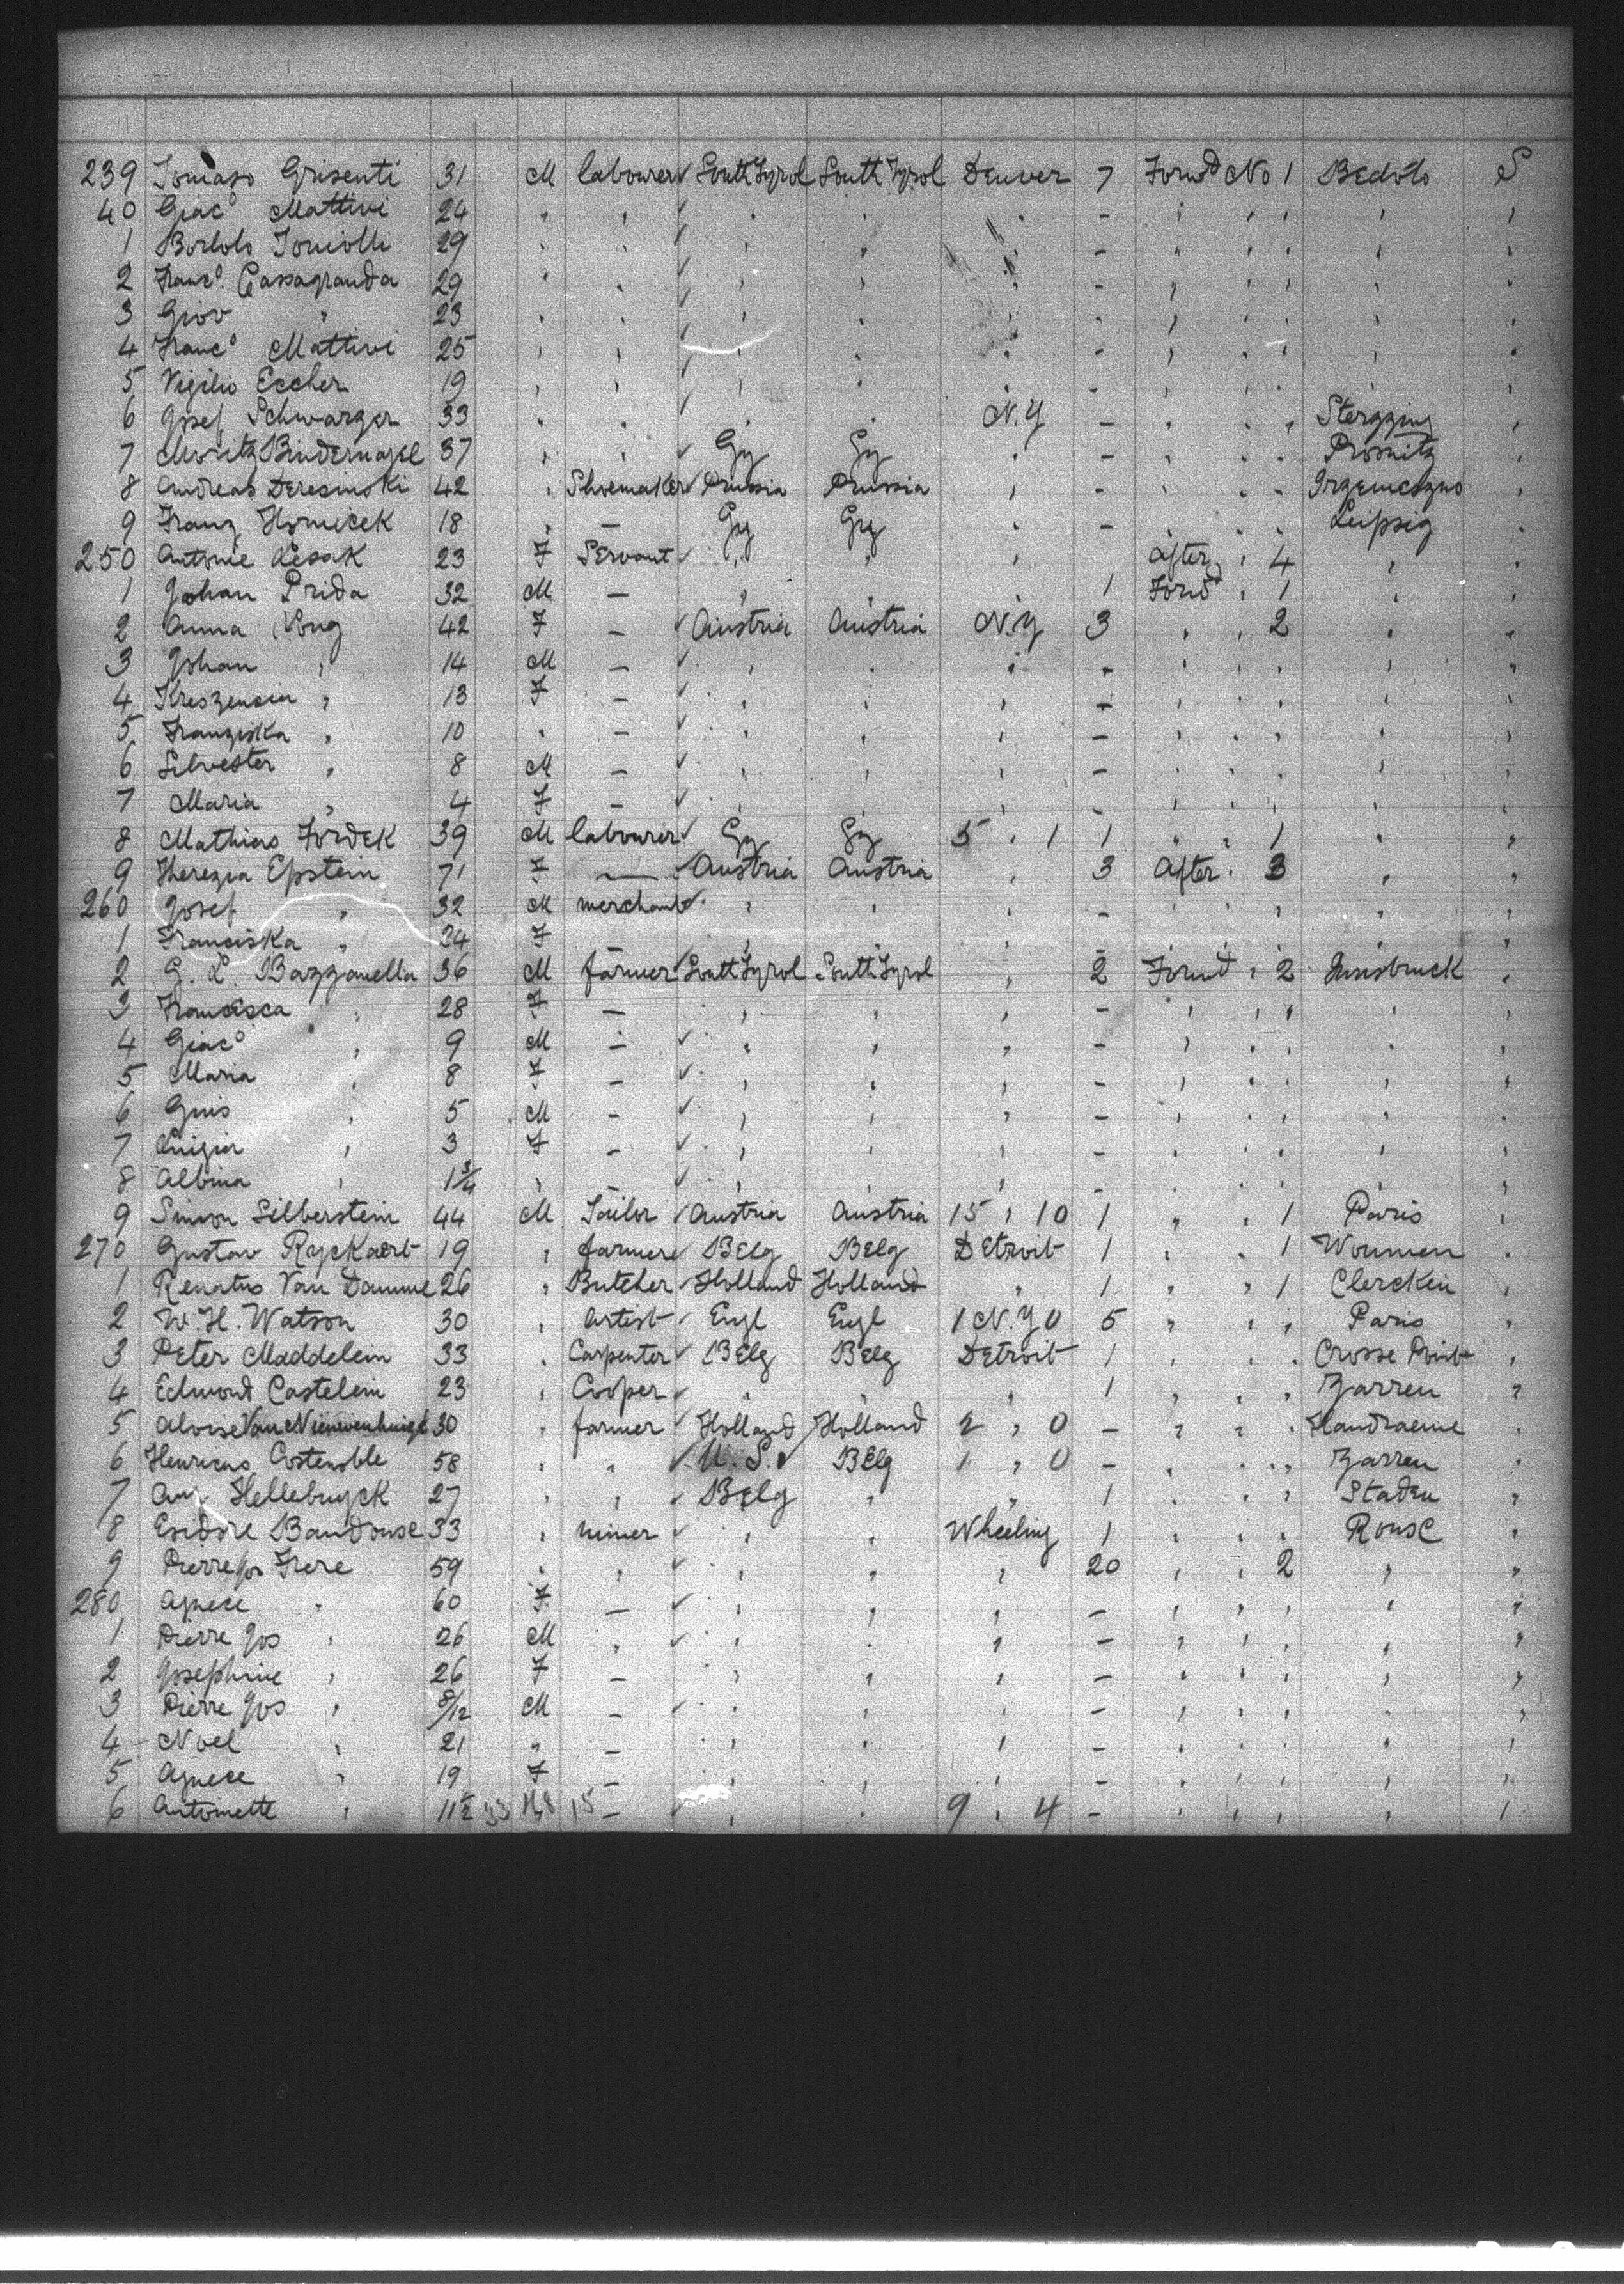 239 Tomaso Grisenti 31 M labourer South Tyrol South Tyrol Denver 7 Forwd No 1 Bedolo S
40 Giac° Mattivi 24 " " " " " - " " " " "
1 Bortolo Tomiolli 29 " " " " " - " " " " "
2 Franc° Cassagranda 29 " " " " " - " " " " "
3 Giov " 23 " " " " " - " " " " "
4 Franc° Mattivi 25 " " " " " - " " " " "
5 Vigilio Eccher 19 " " " " " - " " " " "
6 Josef Schwarzer 33 " " " " N.Y - " " " Sterzzing "
7 Moritz Bindernagel 37 " " Gy Gy " - " " " Prosnitz "
8 Andreas Deresinski 42 " Shoemaker Prussia Prussia " - " " "
9 Franz Hornicek 18 " - Gy Gy " - " " " Leipzig "
250 Antonie Lesak 23 F Servant " " " After " 4 " "
1 Johan Prida 32 M - " " " 1 Forwd " 1 " "
2 Anna Long 42 F - Austria Austria N.Y 3 " " 2 " "
3 Johan " 14 M - " " " - " " " " "
4 Kreszencia " 13 F - " " " - " " " " "
5 Franziska " 10 " - " " " - " " " " "
6 Silvester " 8 M - " " " - " " " " "
7 Maria " 4 F - " " " - " " " " "
8 Mathias Fordek 39 M labourer Gy Gy 5 " 1 1 " " 1 " "
9 Therezia Epstein 71 F - Austria Austria " 3 After " 3 " "
260 Josef " 32 M merchant " " " - " " " " "
1 Franciska " 24 F - " " " - " " " " "
2 G. L. Bazzanella 36 M farmer South Tyrol South Tyrol " 2 Forwd " 2 Innsbruck "
3 Francisca " 28 F - " " " - " " " " "
4 Giac° " 9 M - " " " - " " " " "
5 Maria " 8 F - " " " - " " " " "
6 Guis " 5 M - " " " - " " " " "
7 Luigia " 3 F - " " " - " " " " "
8 Albina " 1 3/4 " - " " " - " " " " "
9 Simon Silberstein 44 M Tailor Austria Austria 15 " 10 1 " " 1 Paris "
270 Gustav Ryckaert 19 " farmer Belg Belg Detroit 1 " " 1 Woumen "
1 Renatus Van Damme 26 " Butcher Holland Holland " 1 " " 1 Clercken "
2 W. H. Watson 30 " Artist Engl Engl 1 N.Y 0 5 " " " Paris "
3 Peter Maddelein 33 " Carpenter Belg Belg Detroit 1 " " " Crosse Point "
4 Edmond Castelein 23 " Cooper " " " 1 " " " Zarren "
5 Aloise Van Nieuwenhuyse 30 " farmer Holland Holland 2 " 0 - " " " Handzaeme "
6 Henricus Costenoble 58 " " U. S. Belg 1 " 0 - " " " Zarren "
7 Aug Hellebuyck 27 " " Belg " " 1 " " " Staden "
8 Esidore Baudouse 33 " miner " " Wheeling 1 " " " Rouse "
9 Pierre Jos Frere 59 " " " " " 20 " " 2 " "
280 Agnese " 60 F - " " " - " " " " "
1 Pierre Jos " 26 M " " " " - " " " " "
2 Josephine " 26 F - " " " - " " " " "
3 Pierre Jos " 8/12 M - " " " - " " " " "
4 Noel " 21 " - " " " - " " " " "
5 Agnese " 19 F - " " " - " " " " "
6 Antoinette " 11 1/2 33 15 - " " 9 " 4 - " " " " "